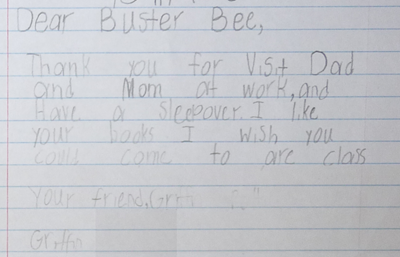 Dear Buster Bee,
Thank you for Visit Dad
and Mom at work, and
Have a Sleepover. I like
your books I wish you
could come to are class
Your friend,
Griffin